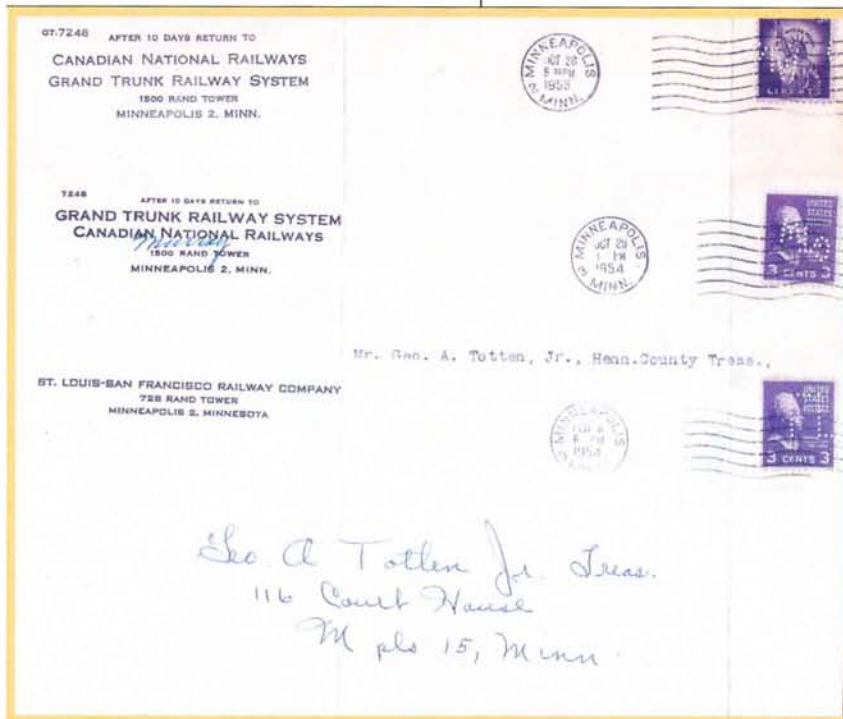 GT-7248 AFTER 10 DAYS RETURN TO
CANADIAN NATIONAL RAILWAYS
GRAND TRUNK RAILWAY SYSTEM
1500 RAND TOWER
MINNEAPOLIS 2, MINN.
MINNEAPOLIS
OCT 28
PM
1955
2 MINN.
LIBERTY
7248 AFTER 10 DAYS RETURN TO
GRAND TRUNK RAILWAY SYSTEM
CANADIAN NATIONAL RAILWAYS
Murray
1500 RAND TOWER
MINNEAPOLIS 2, MINN.
MINNEAPOLIS
OCT 29
1 PM
1954
2 MINN.
UNITED
STATES
POSTAGE
3 CENTS 3
Mr. Geo. A. Totten, Jr., Henn.County Treas.,
ST. LOUIS-SAN FRANCISCO RAILWAY COMPANY
728 RAND TOWER
MINNEAPOLIS 2, MINNESOTA
MINNEAPOLIS
FEB
6 PM
1954
UNITED
STATES
POSTAGE
3 CENTS 3
Geo A Totten Jr. Treas.
116 Court House
Mpls 15, Minn.